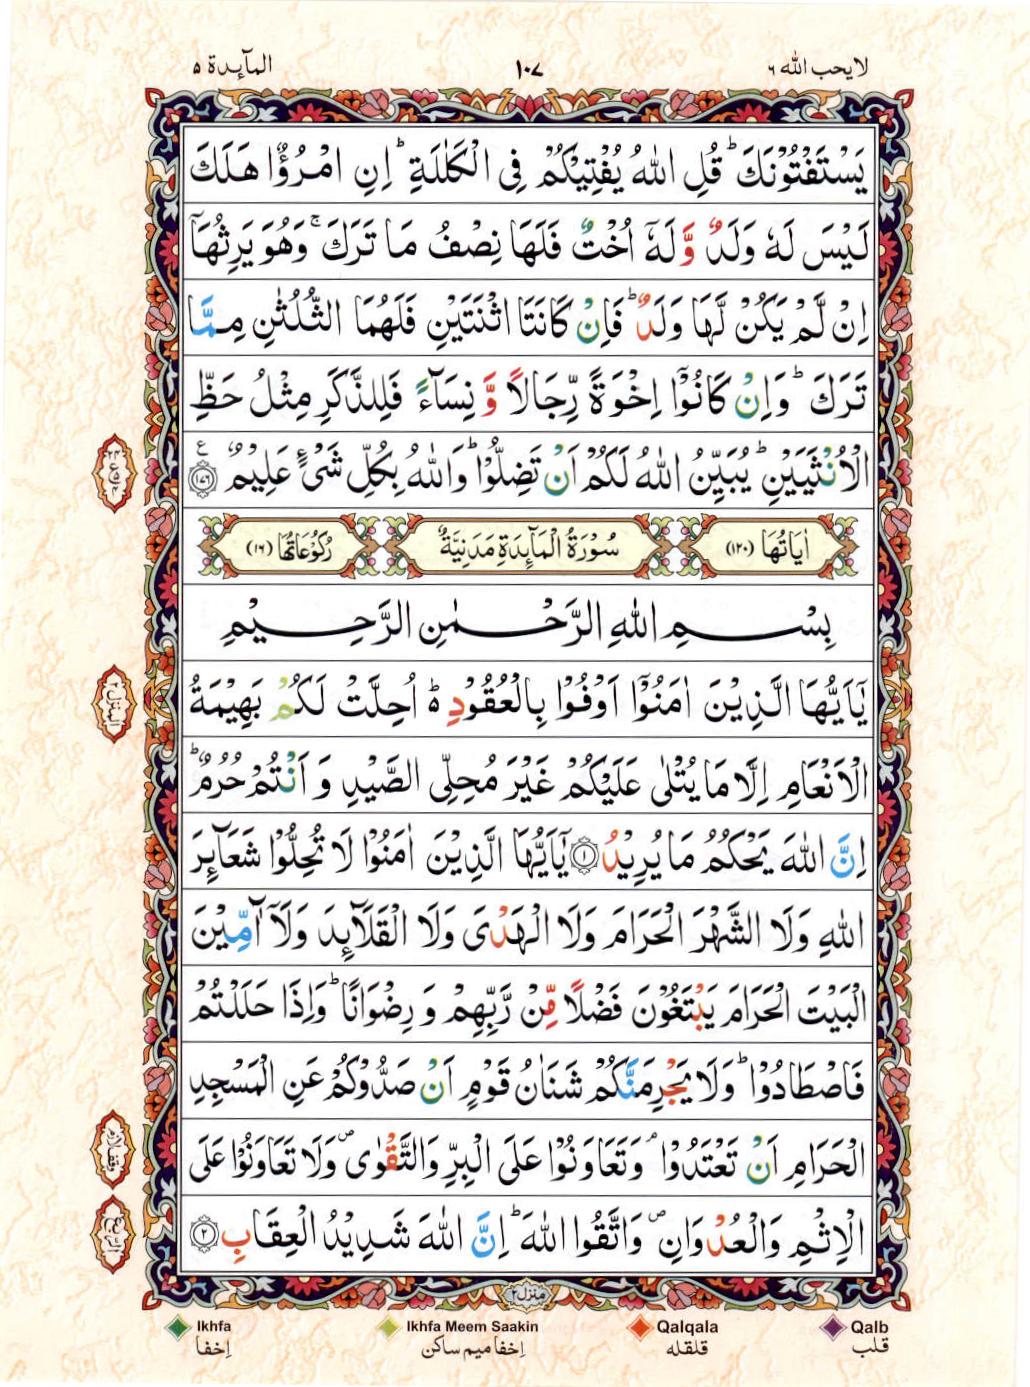 المآئدة ۵
١٠٧
لا يحب الله ۶
يَسْتَفْتُوْنَكَ ؕ قُلِ اللّٰهُ يُفْتِيْكُمْ فِى الْكَلٰلَةِ ؕ اِنِ امْرُؤٌا هَلَكَ
لَيْسَ لَهٗ وَلَدٌ وَّ لَهٗۤ اُخْتٌ فَلَهَا نِصْفُ مَا تَرَكَ ۚ وَهُوَ يَرِثُهَاۤ
اِنْ لَّمْ يَكُنْ لَّهَا وَلَدٌ ؕ فَاِنْ كَانَتَا اثْنَتَيْنِ فَلَهُمَا الثُّلُثٰنِ مِمَّا
تَرَكَ ؕ وَاِنْ كَانُوْۤا اِخْوَةً رِّجَالًا وَّ نِسَآءً فَلِلذَّكَرِ مِثْلُ حَظِّ
الْاُنْثَيَيْنِ ؕ يُبَيِّنُ اللّٰهُ لَكُمْ اَنْ تَضِلُّوْا ؕ وَاللّٰهُ بِكُلِّ شَىْءٍ عَلِيْمٌ ۧ ﴿١٧٦﴾
اٰيَاتُهَا (١٢٠) سُوْرَةُ الْمَآئِدَةِ مَدَنِيَّةٌ رُكُوْعَاتُهَا (١٦)
بِسْمِ اللّٰهِ الرَّحْمٰنِ الرَّحِيْمِ
يٰۤاَيُّهَا الَّذِيْنَ اٰمَنُوْۤا اَوْفُوْا بِالْعُقُوْدِ ؕ اُحِلَّتْ لَكُمْ بَهِيْمَةُ
الْاَنْعَامِ اِلَّا مَا يُتْلٰى عَلَيْكُمْ غَيْرَ مُحِلِّى الصَّيْدِ وَ اَنْتُمْ حُرُمٌ ؕ
اِنَّ اللّٰهَ يَحْكُمُ مَا يُرِيْدُ ﴿١﴾ يٰۤاَيُّهَا الَّذِيْنَ اٰمَنُوْا لَا تُحِلُّوْا شَعَآئِرَ
اللّٰهِ وَلَا الشَّهْرَ الْحَرَامَ وَلَا الْهَدْىَ وَلَا الْقَلَآئِدَ وَلَاۤ آٰمِّيْنَ
الْبَيْتَ الْحَرَامَ يَبْتَغُوْنَ فَضْلًا مِّنْ رَّبِّهِمْ وَ رِضْوَانًا ؕ وَاِذَا حَلَلْتُمْ
فَاصْطَادُوْا ؕ وَلَا يَجْرِمَنَّكُمْ شَنَاٰنُ قَوْمٍ اَنْ صَدُّوْكُمْ عَنِ الْمَسْجِدِ
الْحَرَامِ اَنْ تَعْتَدُوْا ۘ وَتَعَاوَنُوْا عَلَى الْبِرِّ وَالتَّقْوٰى ۖ وَلَا تَعَاوَنُوْا عَلَى
الْاِثْمِ وَالْعُدْوَانِ ۖ وَاتَّقُوا اللّٰهَ ؕ اِنَّ اللّٰهَ شَدِيْدُ الْعِقَابِ ﴿٢﴾
المنزل ٢
وقف لازم
الربع
منزل ٢
Ikhfa
Ikhfa Meem Saakin
Qalqala
Qalb
إخفا
إخفا ميم ساكن
قلقله
قلب